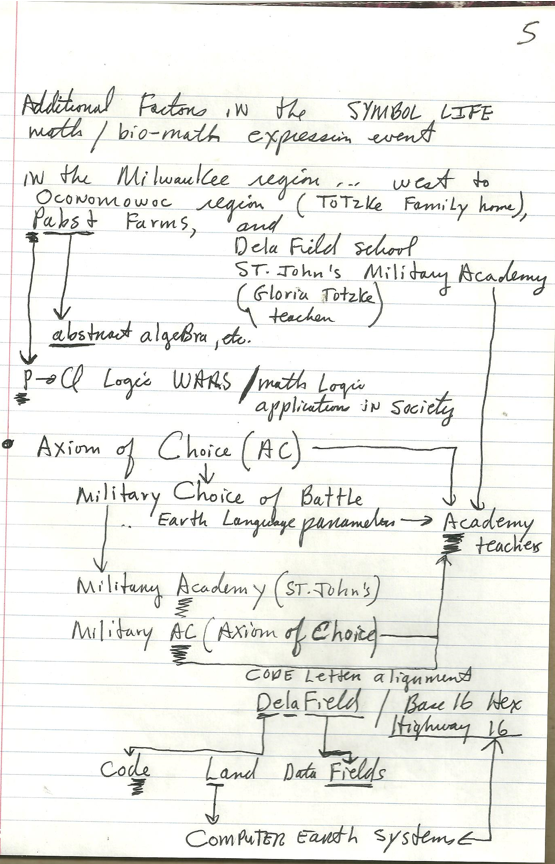 5
Additional Factors in the SYMBOL LIFE
math / bio-math expression event
in the Milwaukee region ... west to
Oconomowoc region (Totzke Family home),
Pabst Farms, and
Dela Field school
ST. John's Military Academy
(Gloria Totzke)
teacher
abstract algebra, etc.
P → Q Logic WARS / math Logic
applications in Society
• Axiom of Choice (AC)
Military Choice of Battle
.. Earth Language parameters → Academy
teachers
Military Academy (ST. John's)
Military AC (Axiom of Choice)
CODE Letter alignment
DelaField / Base 16 Hex
Highway 16
Code Land Data Fields
COMPUTER Earth systems